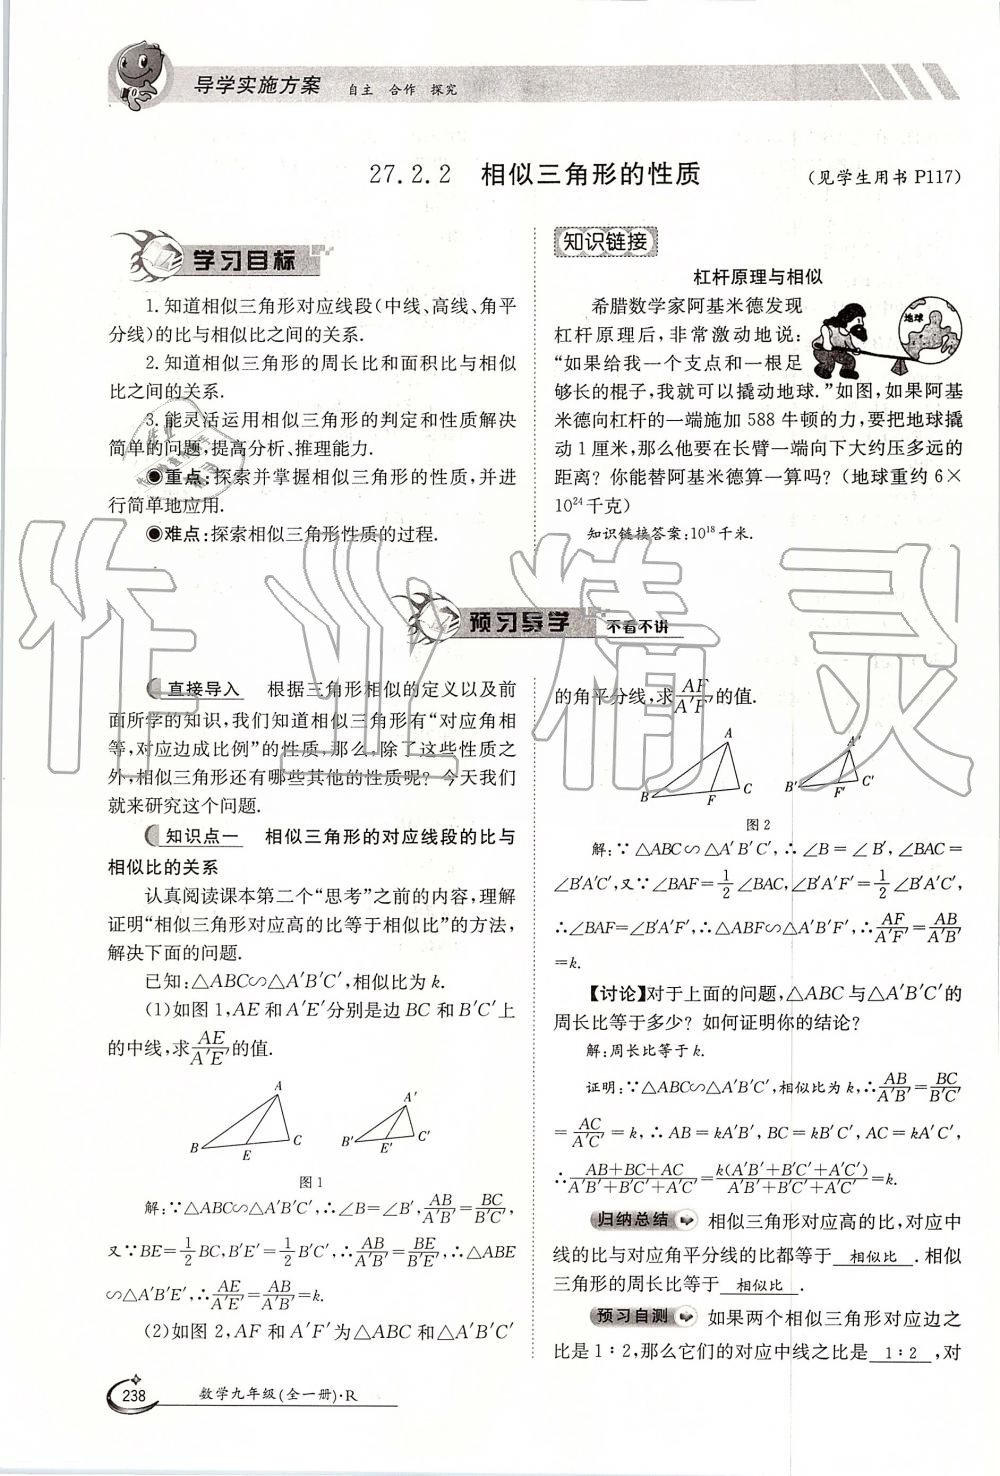 导学实施方案 自主 合作 探究
27.2.2 相似三角形的性质 (见学生用书 P117)
学习目标
1. 知道相似三角形对应线段(中线、高线、角平
分线)的比与相似比之间的关系.
2. 知道相似三角形的周长比和面积比与相似
比之间的关系.
3. 能灵活运用相似三角形的判定和性质解决
简单的问题,提高分析、推理能力.
◉重点:探索并掌握相似三角形的性质,并进
行简单地应用.
◉难点:探索相似三角形性质的过程.
知识链接
杠杆原理与相似
希腊数学家阿基米德发现
杠杆原理后,非常激动地说:
“如果给我一个支点和一根足
够长的棍子,我就可以撬动地球.”如图,如果阿基
米德向杠杆的一端施加 588 牛顿的力,要把地球撬
动 1 厘米,那么他要在长臂一端向下大约压多远的
距离? 你能替阿基米德算一算吗? (地球重约 6×
10²⁴千克)
知识链接答案:10¹⁸千米.
地球
预习导学 不看不讲
直接导入 根据三角形相似的定义以及前
面所学的知识,我们知道相似三角形有“对应角相
等,对应边成比例”的性质,那么,除了这些性质之
外,相似三角形还有哪些其他的性质呢? 今天我们
就来研究这个问题.
知识点一 相似三角形的对应线段的比与
相似比的关系
认真阅读课本第二个“思考”之前的内容,理解
证明“相似三角形对应高的比等于相似比”的方法,
解决下面的问题.
已知:△ABC∽△A′B′C′,相似比为 k.
(1)如图 1,AE 和 A′E′分别是边 BC 和 B′C′上
的中线,求AE/A′E′的值.
A B E C A′ B′ E′ C′
图 1
解:∵△ABC∽△A′B′C′,∴∠B=∠B′,AB/A′B′=BC/B′C′,
又∵BE=1/2BC,B′E′=1/2B′C′,∴AB/A′B′=BE/B′E′,∴△ABE
∽△A′B′E′,∴AE/A′E′=AB/A′B′=k.
(2)如图 2,AF 和 A′F′为△ABC 和△A′B′C′
的角平分线,求AF/A′F′的值.
A B F C A′ B′ F′ C′
图 2
解:∵△ABC∽△A′B′C′,∴∠B=∠B′,∠BAC=
∠B′A′C′,又∵∠BAF=1/2∠BAC,∠B′A′F′=1/2∠B′A′C′,
∴∠BAF=∠B′A′F′,∴△ABF∽△A′B′F′,∴AF/A′F′=AB/A′B′
=k.
【讨论】对于上面的问题,△ABC 与△A′B′C′的
周长比等于多少? 如何证明你的结论?
解:周长比等于 k.
证明:∵△ABC∽△A′B′C′,相似比为 k,∴AB/A′B′=BC/B′C′
=AC/A′C′=k,∴AB=kA′B′,BC=kB′C′,AC=kA′C′,
∴(AB+BC+AC)/(A′B′+B′C′+A′C′)=k(A′B′+B′C′+A′C′)/(A′B′+B′C′+A′C′)=k.
归纳总结 相似三角形对应高的比,对应中
线的比与对应角平分线的比都等于 相似比 .相似
三角形的周长比等于 相似比 .
预习自测 如果两个相似三角形对应边之
比是 1∶2,那么它们的对应中线之比是 1∶2 ,对
238 数学九年级(全一册)·R
作业精灵